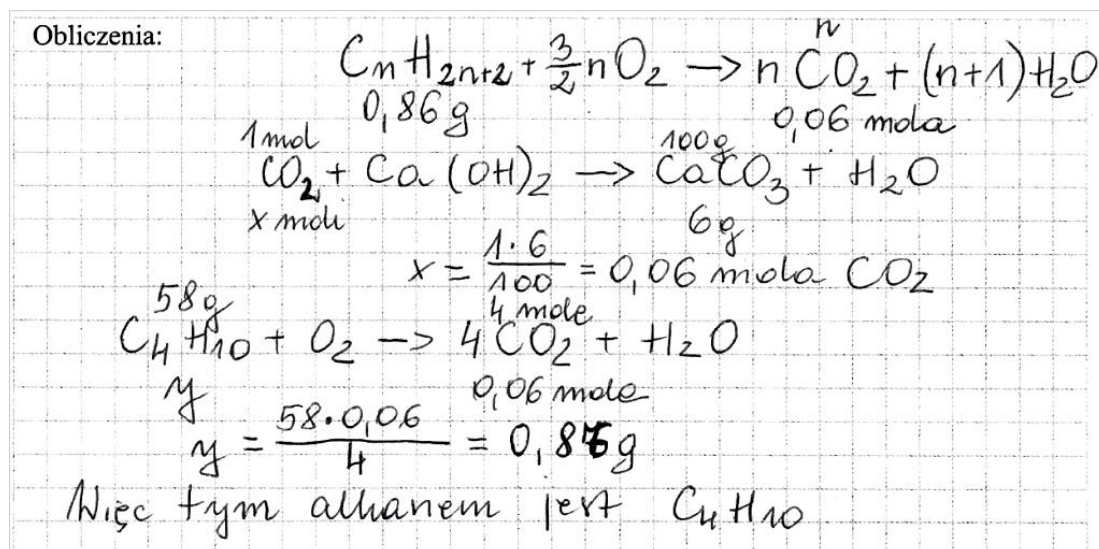 Obliczenia:
n
CnH2n+2 + 3/2 nO2 → n CO2 + (n+1) H2O
0,86g 0,06 mola
1 mol 100g
CO2 + Ca(OH)2 → CaCO3 + H2O
x moli 6g
x = 1·6/100 = 0,06 mola CO2
58g 4 mole
C4H10 + O2 → 4CO2 + H2O
y 0,06 mole
y = 58·0,06/4 = 0,87g
Więc tym alkanem jest C4H10